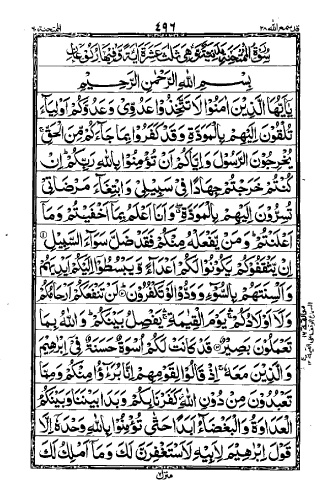 قد سمع الله ٢٨ ٤٩٦ الممتحنة ٦٠
سورة الممتحنة مدنية وهي ثلث عشرة اية وفيها ركوعان
بسم الله الرحمن الرحيم
يايها الذين امنوا لا تتخذوا عدوي وعدوكم اولياء
تلقون اليهم بالمودة وقد كفروا بما جاءكم من الحق
يخرجون الرسول واياكم ان تؤمنوا بالله ربكم ان
كنتم خرجتم جهادا في سبيلي وابتغاء مرضاتي
تسرون اليهم بالمودة وانا اعلم بما اخفيتم وما
اعلنتم ومن يفعله منكم فقد ضل سواء السبيل ①
ان يثقفوكم يكونوا لكم اعداء ويبسطوا اليكم ايديهم
والسنتهم بالسوء وودوا لو تكفرون ② لن تنفعكم ارحامكم
ولا اولادكم يوم القيمة يفصل بينكم والله بما
تعملون بصير ③ قد كانت لكم اسوة حسنة في ابرهيم
والذين معه اذ قالوا لقومهم انا برءؤا منكم ومما
تعبدون من دون الله كفرنا بكم وبدا بيننا وبينكم
العداوة والبغضاء ابدا حتى تؤمنوا بالله وحده الا
قول ابرهيم لابيه لاستغفرن لك وما املك لك
منزل